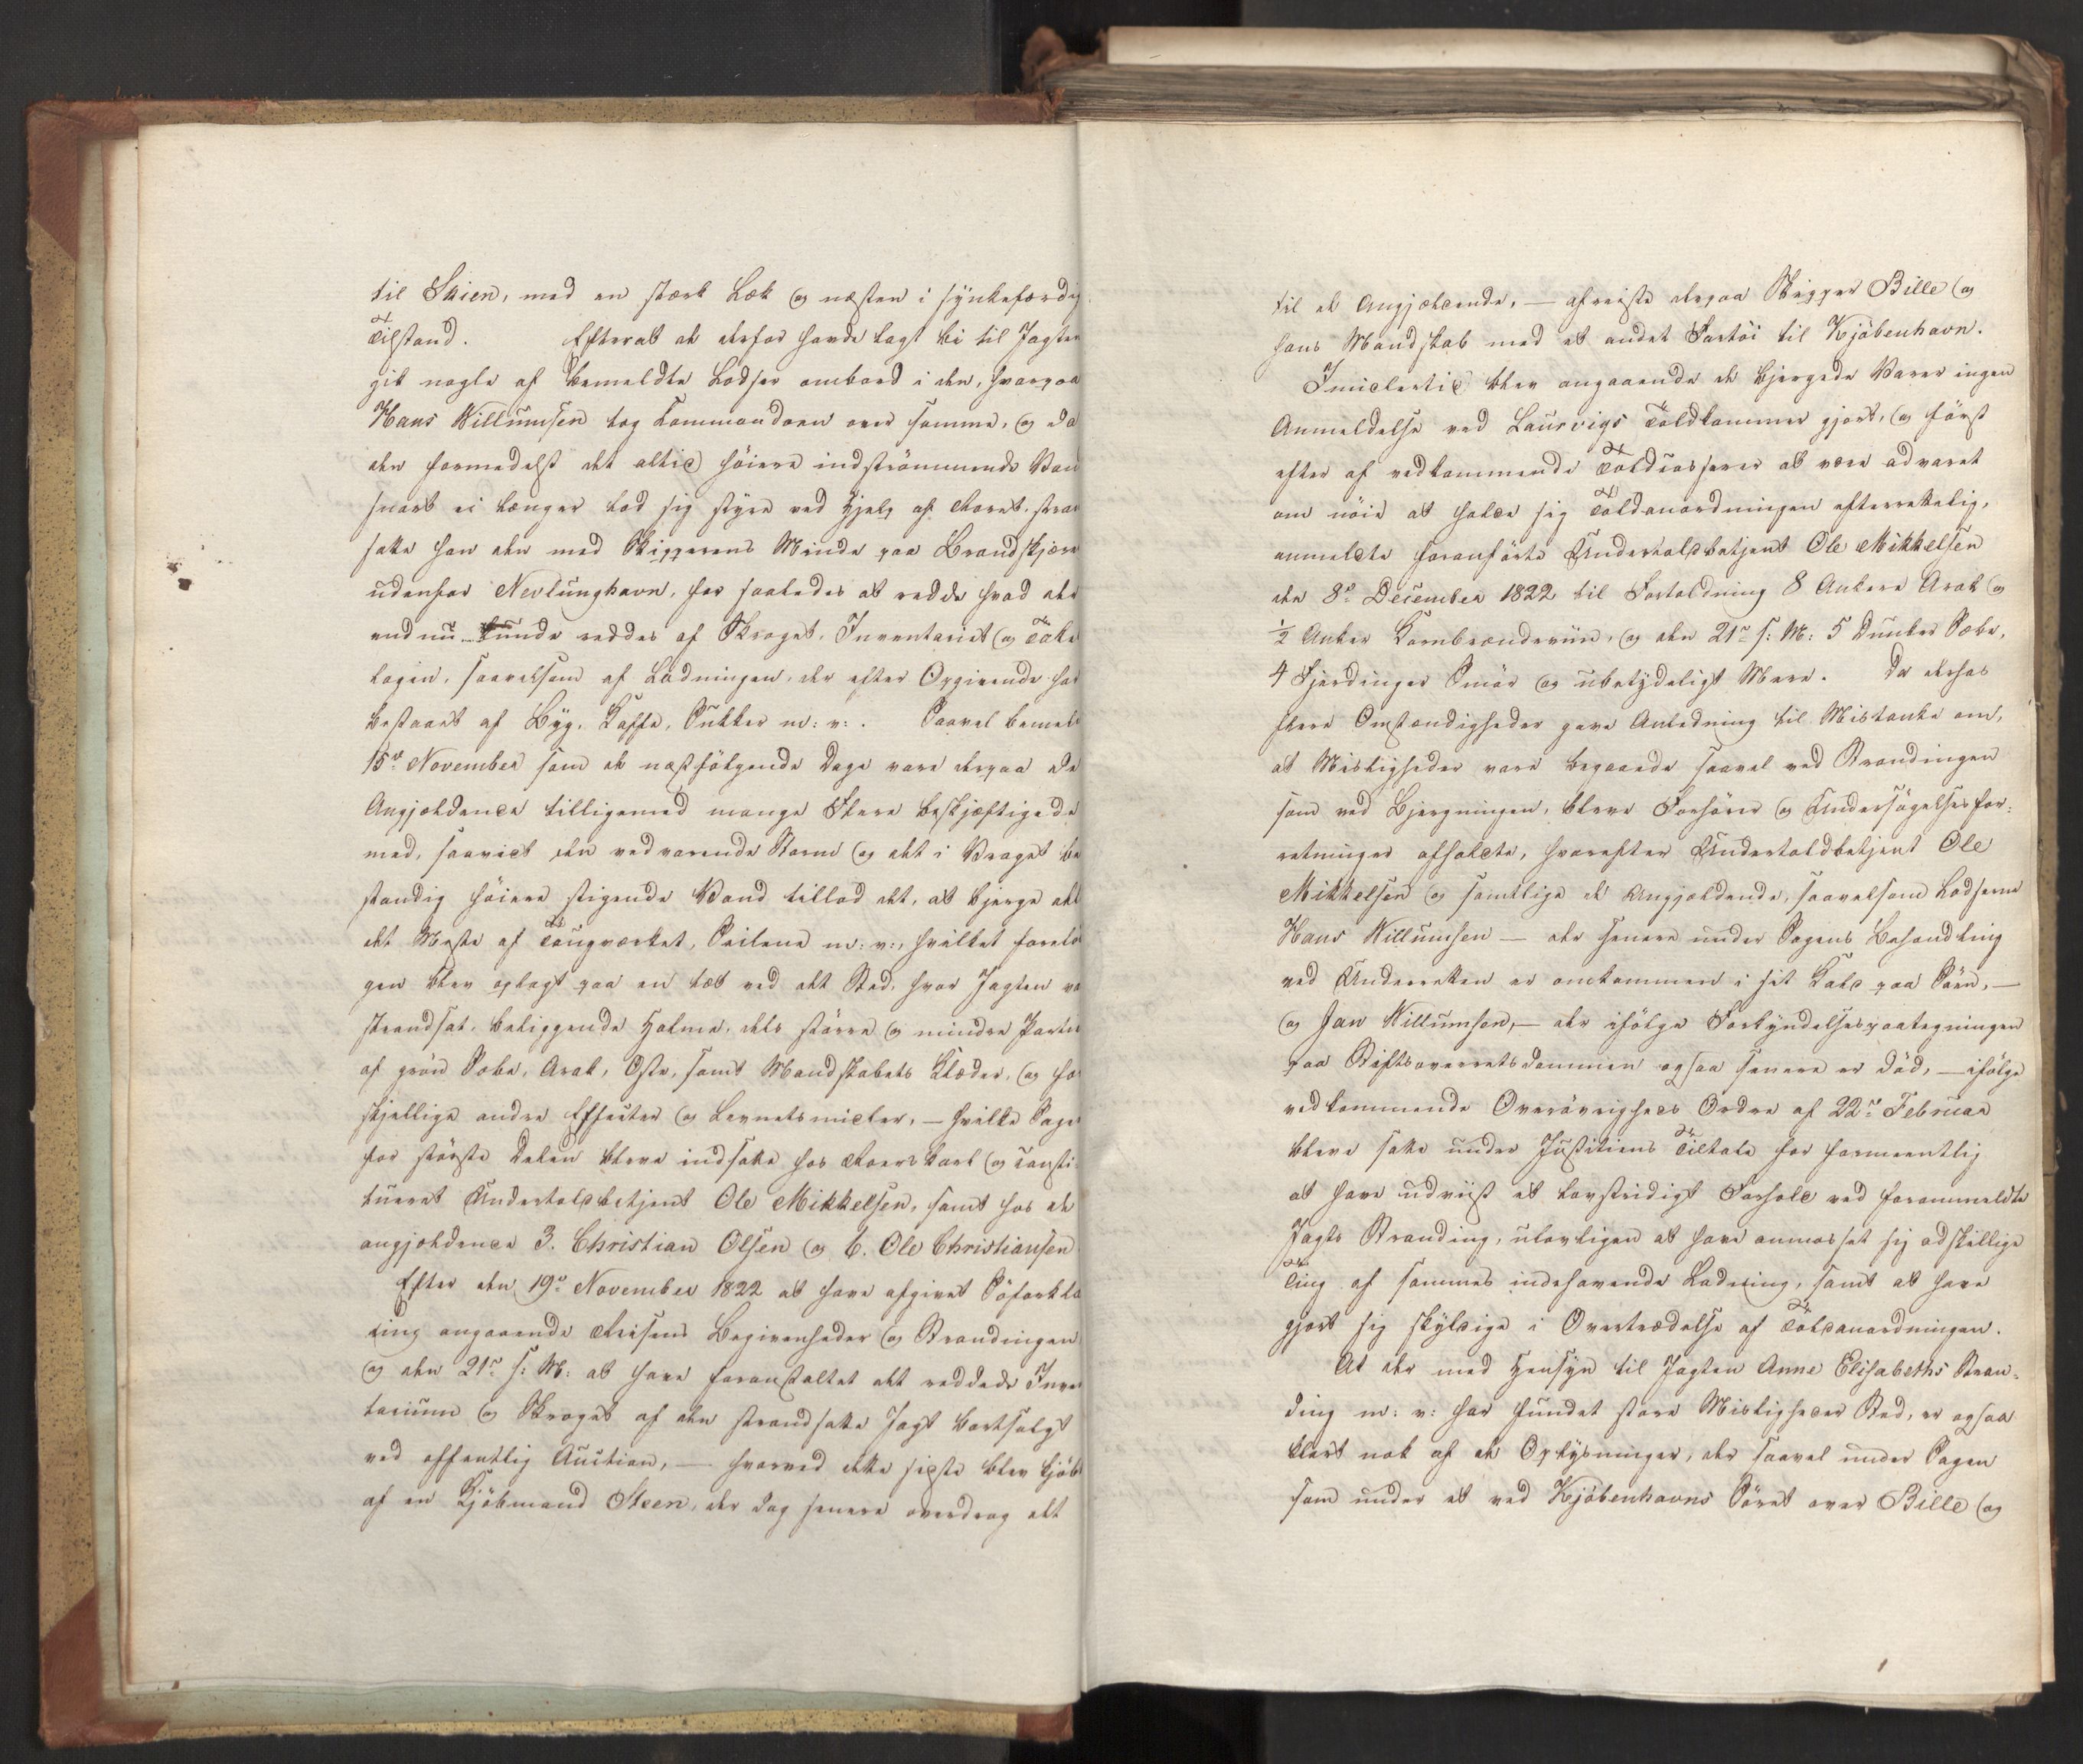 til Skien, med en stærk Læk og næsten i synkefærdig
Tilstand. Efterat de derfor havde lagt bi til Jagten
gik nogle af bemeldte Lodser ombord i den, hvorpaa
Hans Willumsen tog Commandoen over samme, og da
den formedelst det altid høiere indstrømmende Van
snart ei længer lod sig styre ved Hjelp af Roret, stran
satte han den med Skipperens Minde paa Brandskjære
udenfor Nevlunghavn, for saaledes at redde hvad der
endnu kunde reddes af Skroget, Inventariet og Take
lagen, saavelsom af Ladningen, der efter Opgivende har
bestaaet af Byg, Kaffe, Sukker m: v: . Saavel bemel
15de November som de næstfølgende Dage vare derpaa de
Angjældende tilligemed mange Flere beskjæftigede
med, saavidt den vedvarende Storm og det i Vraget be
standig høiere stigende Vand tillod det, at bjerge det
det Meste af Tougværket, Seilene m: v:, hvilket forelø
gen blev oplagt paa en tæt ved det Sted, hvor Jagten va
strandsat, beliggende Holme, dels større og mindre Partie
af grøn Sæbe, Arak, Oste, samt Mandskabets Klæder, og for
skjellige andre Effecter og Levnetsmidler, — hvilke Sager
for største Delen bleve indsatte hos Roerskarl og Consti
tueret Undertoldbetjent Ole Mikkelsen, samt hos de
angjældende 3. Christian Olsen og 6. Ole Christiansen.
Efter den 19de November 1822 at have afgivet Søforkla
ring angaaende Reisens Begivenheder og Strandingen
og den 21de s: M: at have foranstaltet det reddede Inven
tarium og Skroget af den strandsatte Jagt bortsolgt
ved offentlig Auction, — hvorved dette sidste blev kjøbt
af en Kjøbmand Steen, der Dag senere overdrog det
til de Angjældende, — afreiste derpaa Skipper Bille og
hans Mandskab med et andet Fartøi til Kjøbenhavn.
Imidlertid blev angaaende de bjergede Varer ingen
Anmeldelse ved Laurvigs Toldkammer gjort, og først
efter af vedkommende Toldcasserer at være advaret
om nøie at holde sig Toldanordningen efterrettelig,
anmeldte foranførte Undertoldbetjent Ole Mikkelsen
den 8de December 1822 til Fortoldning 8 Ankere Arak og
½ Anker Kornbrændeviin, og den 21de s: M: 5 Dunker Sæbe,
4 Fjerdinger Smør og ubetydeligt Mere. Da derhos
flere Omstændigheder gave Anledning til Mistanke om,
at Misligheder vare begaaede saavel ved Strandingen
som ved Bjergningen, bleve Forhører og Undersøgelsesfor:
retninger afholdte, hvorefter Undertoldbetjent Ole
Mikkelsen og samtlige de Angjældende, saavelsom Lodserne
Hans Willumsen — der senere under Sagens Behandling
ved Underretten er omkommen i sit Kald paa Søen, —
og Jan Willumsen, — der ifølge Forkyndelsespaategningen
paa Stiftsoverretsdommen ogsaa senere er død, — ifølge
vedkommende Overøvrigheds Ordre af 22de Februar
bleve satte under Justitiens Tiltale for formeentlig
at have udviist et lovstridigt Forhold ved forommeldte
Jagts Stranding, ulovligen at have anmasset sig adskillige
Ting af sammes indehavende Ladning, samt at have
gjort sig skyldige i Overtrædelse af Toldanordningen.
At der med Hensyn til Jagten Anne Elisabeths Stran:
ding m: v: har fundet store Misligheder Sted, er ogsaa
klart nok af de Oplysninger, der saavel under Sagen
som under et ved Kjøbenhavns Søret over Bille og